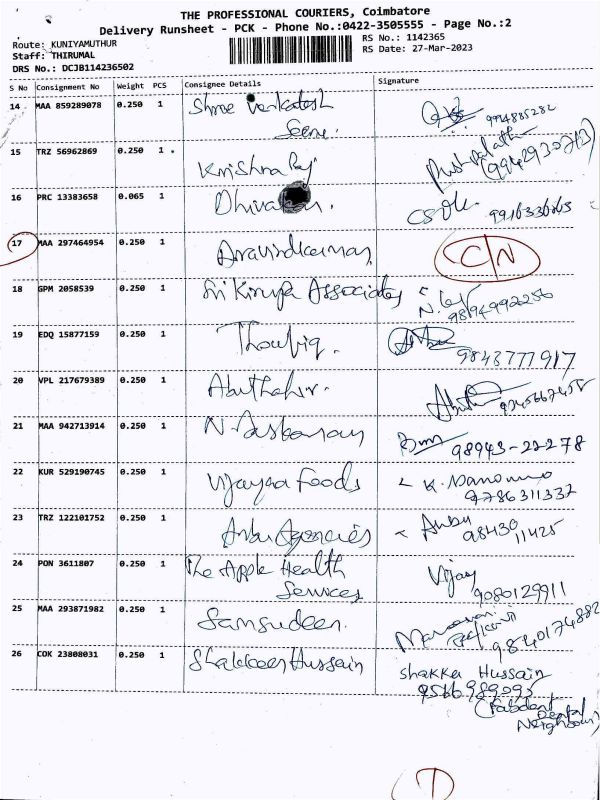 THE PROFESSIONAL COURIERS, Coimbatore
Delivery Runsheet - PCK - Phone No.:0422-3505555 - Page No.:2
Route: KUNIYAMUTHUR
Staff: THIRUMAL
DRS No.: DCJB114236502
RS No.: 1142365
RS Date: 27-Mar-2023
S No Consignment No Weight PCS Consignee Details Signature
14 MAA 859289078 0.250 1 Shree Venkatesh 9994885282
15 TRZ 56962869 0.250 1 Krishna Raj Pushpalatha
(9942930713)
16 PRC 13383658 0.065 1 Dhivakar.
17 MAA 297464954 0.250 1 Aravindkumar C/N
18 GPM 2058539 0.250 1 Sri Kirupa Associates
9894992256
19 EDQ 15877159 0.250 1 Thoufiq.
9843777917
20 VPL 217679389 0.250 1 Abuthahir.
21 MAA 942713914 0.250 1 N. 98943-22278
22 KUR 529190745 0.250 1 Vijayaa Foods K.
9786311332
23 TRZ 122101752 0.250 1 Anbu Agencies Anbu
98430
11425
24 PON 3611807 0.250 1 The Apple Health Vijay
Services 9080129911
25 MAA 293871982 0.250 1 Samsudeen.
9840174882
26 COK 23808031 0.250 1 Shakkeer Hussain Shakka Hussain
9566989095
Dental
Neighbour)